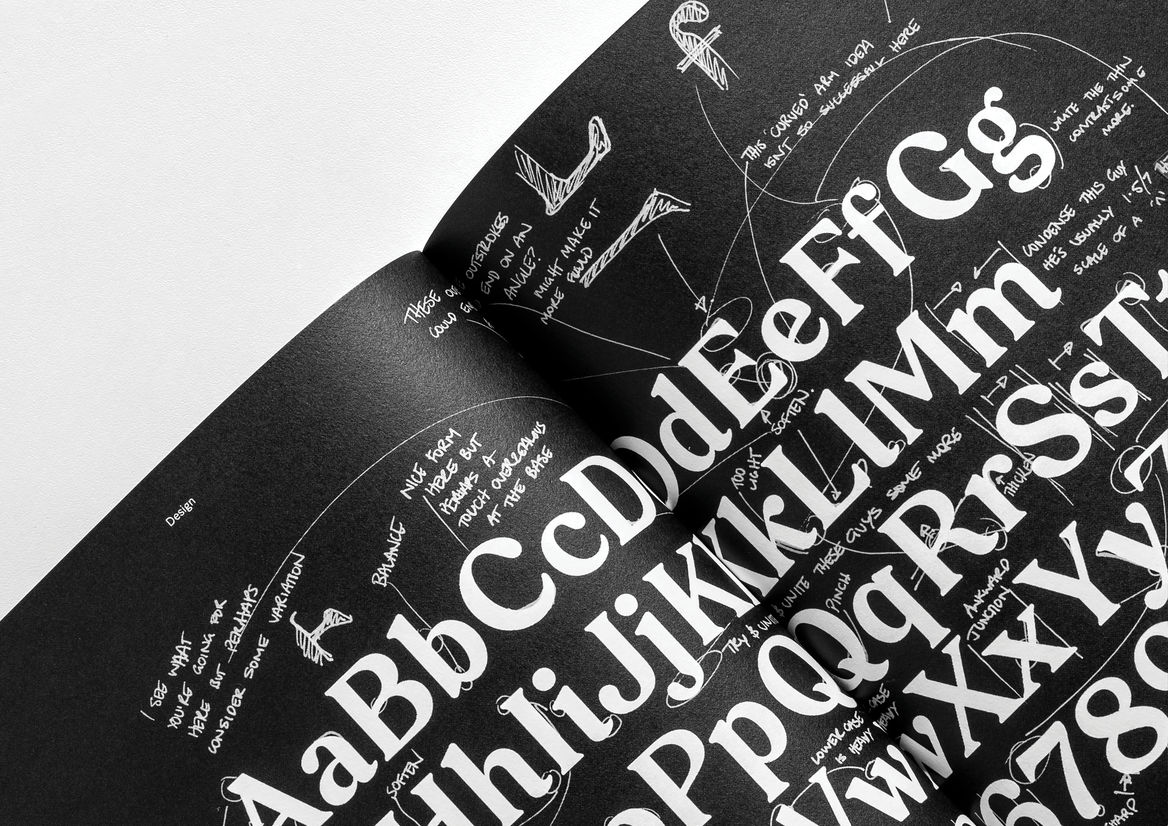 THIS 'CURVED' ARM IDEA
ISN'T SO SUCCESSFUL HERE
UNITE THE THIN
CONTRAST SOME
MORE.
CONDENSE THIS GUY
HE'S USUALLY 1.5/
SCALE OF A
THESE OUTSTROKES
COULD END ON AN
ANGLE?
MIGHT MAKE IT
MORE FLUID
SOFTEN.
TOO
LIGHT
NICE FORM
HERE BUT
PERHAPS A
TOUCH OVERZEALOUS
AT THE BASE
BALANCE
Design
I SEE WHAT
YOU'RE GOING FOR
HERE BUT PERHAPS
CONSIDER SOME VARIATION
AaBbCcDdEeFfGg
HhIiJjKkLlMm
PpQqRrSsT
wXxYy
678
THICKEN
TRY & UNITE THESE GUYS SOME MORE
PINCH
AWKWARD
JUNCTION
LOWER CASE
IS HEAVY HEAVY
SOFTEN
SHARP